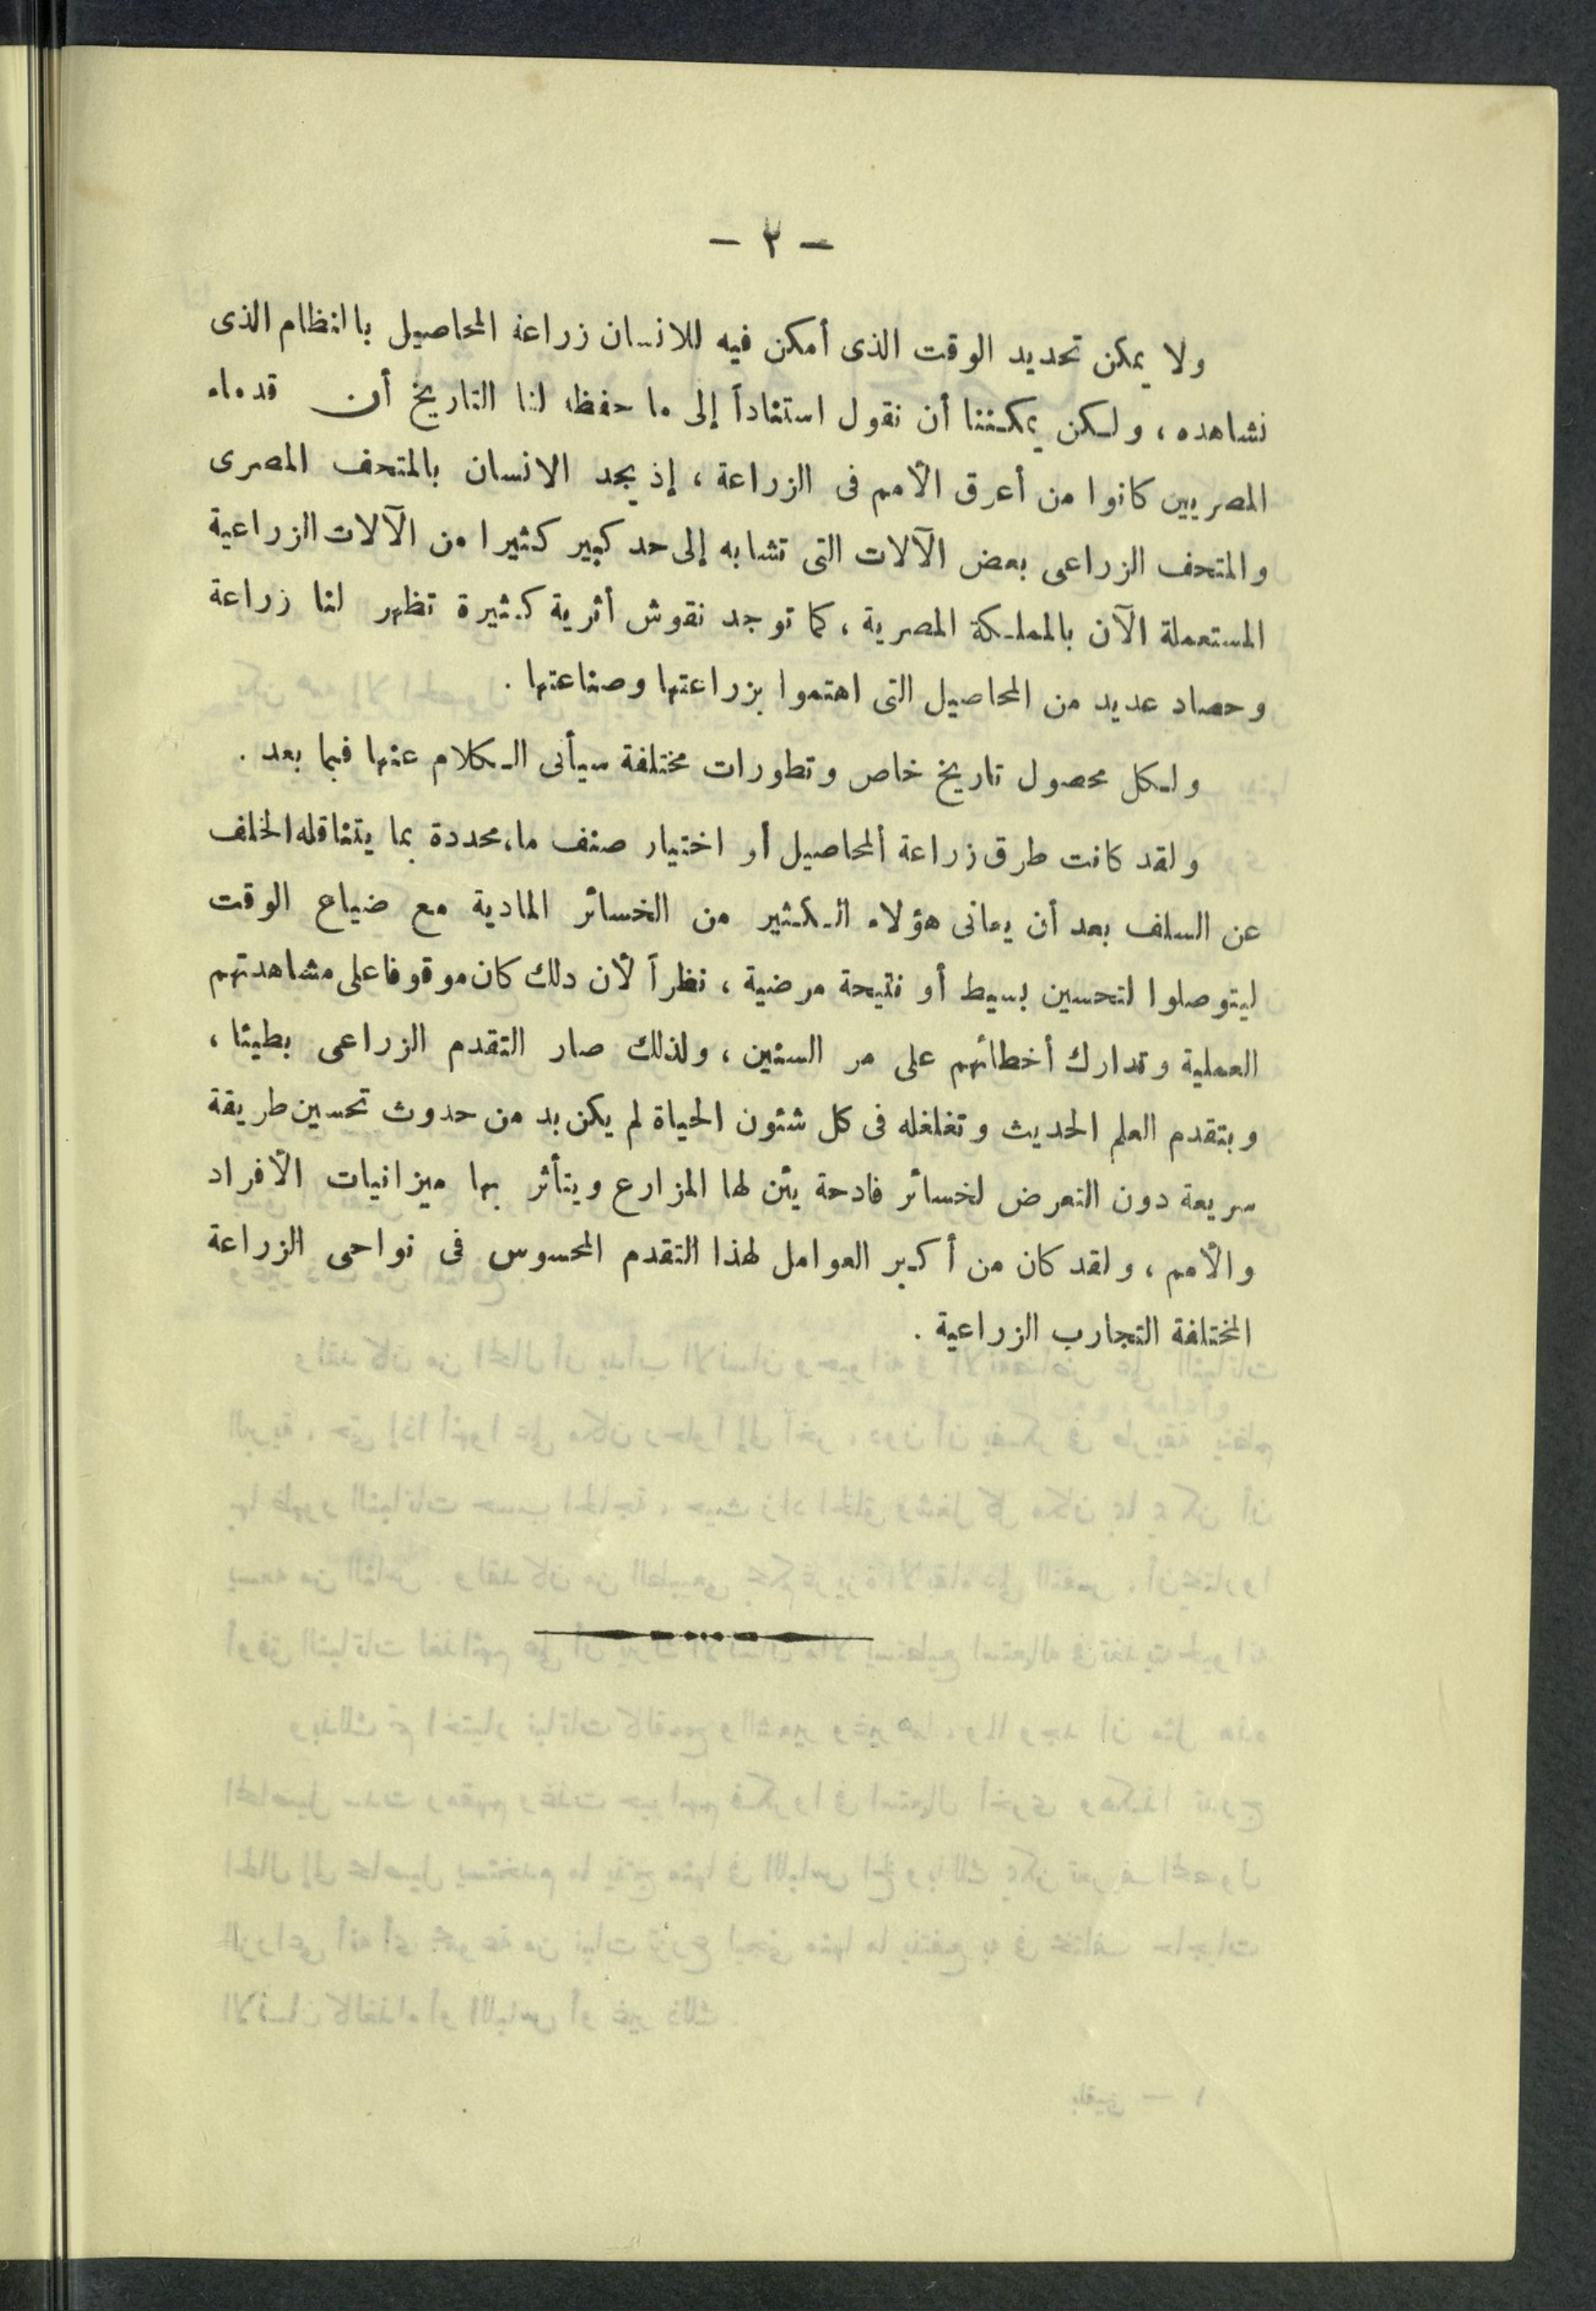 — ٢ —
ولا يمكن تحديد الوقت الذى أمكن فيه للانسان زراعة المحاصيل بالنظام الذى
نشاهده ، ولكن يمكننا أن نقول استناداً إلى ما حفظه لنا التاريخ أن قدماء
المصريين كانوا من أعرق الأمم فى الزراعة ، إذ يجد الانسان بالمتحف المصرى
والمتحف الزراعى بعض الآلات التى تشابه إلى حد كبير كثيرا من الآلات الزراعية
المستعملة الآن بالمملكة المصرية ، كما توجد نقوش أثرية كثيرة تظهر لنا زراعة
وحصاد عديد من المحاصيل التى اهتموا بزراعتها وصناعتها .
ولكل محصول تاريخ خاص وتطورات مختلفة سيأتى الكلام عنها فيما بعد .
ولقد كانت طرق زراعة المحاصيل أو اختيار صنف ما، محددة بما يتناقله الخلف
عن السلف بعد أن يعانى هؤلاء الكثير من الخسائر المادية مع ضياع الوقت
ليتوصلوا لتحسين بسيط أو نتيحة مرضية ، نظراً لأن دلك كان موقوفا على مشاهدتهم
العملية وتدارك أخطائهم على مر السنين ، ولذلك صار التقدم الزراعى بطيئا ،
وبتقدم العلم الحديث وتغلغله فى كل شئون الحياة لم يكن بد من حدوث تحسين طريقة
سريعة دون التعرض لخسائر فادحة يئن لها المزارع ويتأثر بها ميزانيات الأفراد
والأمم ، ولقد كان من أكبر العوامل لهذا التقدم المحسوس فى نواحى الزراعة
المختلفة التجارب الزراعية .